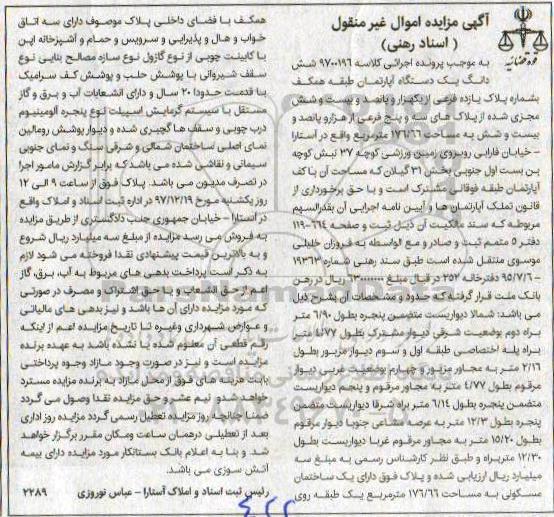 آگهی مزایده اموال غیر منقول
( اسناد رهنی)
به موجب پرونده اجرائی کلاسه ۹۷۰۰۱۹۶ شش
دانگ یک دستگاه آپارتمان طبقه همکف
بشماره پلاک یازده فرعی از یکهزار و پانصد و بیست و شش
مجزی شده از پلاک های سه و پنج فرعی از هزار و پانصد و
بیست و شش به مساحت ۱۷۶/۶۶ مترمربع واقع در آستارا
- خیابان فارابی روبروی زمین ورزشی کوچه ۳۷ نبش کوچه
بن بست اول جنوبی بخش ۳۱ گیلان که مساحت آن با کف
آپارتمان طبقه فوقانی مشترک است و با حق برخورداری از
قانون تملک آپارتمان ها و آیین نامه اجرایی آن بقدرالسهم
مربوطه که سند مالکیت آن ذیل ثبت و صفحه ۶۶۴-۱۱۹
دفتر ۵ متمم ثبت و صادر و مع الواسطه به فروزان خلیلی
موسوی منتقل شده است طبق سند رهنی شماره ۱۹۳۶۳
- ۹۵/۷/۶ دفترخانه ۲۵۲ در قبال مبلغ ریال در رهن
بانک ملت قرار گرفته که حدود و مشخصات آن بشرح ذیل
می باشد: شمالا دیواریست متضمن پنجره بطول ۶/۹۰ متر
براه دوم بوضعیت شرقی دیوار مشترک بطول ۱/۷۷ متر
براه پله اختصاصی طبقه اول و سوم دیوار مزبور بطول
۲/۱۶ متر به مجاور مزبور و چهارم بوضعیت غربی دیوار
مرقوم بطول ۴/۷۷ متر به مجاور مرقوم و پنجم دیواریست
متضمن پنجره بطول ۶/۱۴ متر به راه شرقا دیواریست متضمن
پنجره بطول ۱۲/۳ متر به عرصه مشاعی جنوبا دیوار مرقوم
بطول ۱۵/۲۰ متر به مجاور مرقوم غربا دیواریست بطول
۱۲/۳۰ متر براه و طبق نظر کارشناس رسمی به مبلغ سه
میلیارد ریال ارزیابی شده و پلاک فوق دارای یک ساختمان
مسکونی به مساحت ۱۷۶/۶۶ مترمربع یک طبقه روی
همکف با فضای داخلی پلاک موصوف دارای سه اتاق
خواب و هال و پذیرایی و سرویس و حمام و آشپزخانه اپن
با کابینت چوبی از نوع گازول نوع سازه مصالح بنایی نوع
سقف شیروانی با پوشش حلب و پوشش کف سرامیک
با قدمت حدودا ۲۰ سال و دارای انشعابات آب و برق و گاز
مستقل با سیستم گرمایش اسپیلت نوع پنجره آلومینیوم
درب چوبی و سقف ها گچبری شده و دیوار پوشش رومالین
نمای اصلی ساختمان شمالی و شرقی سنگ و نمای جنوبی
سیمانی و نقاشی شده می باشد که برابر گزارش مامور اجرا
در تصرف مدیون می باشد. پلاک فوق از ساعت ۹ الی ۱۲
روز یکشنبه مورخ ۹۷/۱۲/۱۹ در اداره ثبت اسناد و املاک واقع
در آستارا - خیابان جمهوری جنب دادگستری از طریق مزایده
به فروش می رسد مزایده از مبلغ سه میلیارد ریال شروع
و به بالاترین قیمت پیشنهادی نقدا فروخته می شود لازم
به ذکر است پرداخت بدهی های مربوط به آب، برق، گاز
اعم از حق انشعاب و یا حق اشتراک و مصرف در صورتی
که مورد مزایده دارای آن ها باشد و نیز بدهی های مالیاتی
و عوارض شهرداری وغیره تا تاریخ مزایده اعم از اینکه
رقم قطعی آن معلوم شده یا نشده باشد به عهده برنده
مزایده است و نیز در صورت وجود مازاد وجوه پرداختی
بابت هزینه های فوق از محل مازاد به برنده مزایده مسترد
خواهد شد و نیم عشر و حق مزایده نقدا وصول می گردد
ضمنا چنانچه روز مزایده تعطیل رسمی گردد مزایده روز اداری
بعد از تعطیلی درهمان ساعت ومکان مقرر برگزار خواهد
شد و بنا به اعلام بانک بستانکار مورد مزایده دارای بیمه
آتش سوزی می باشد.
رئیس ثبت اسناد و املاک آستارا - عباس نوروزی ۲۲۸۹